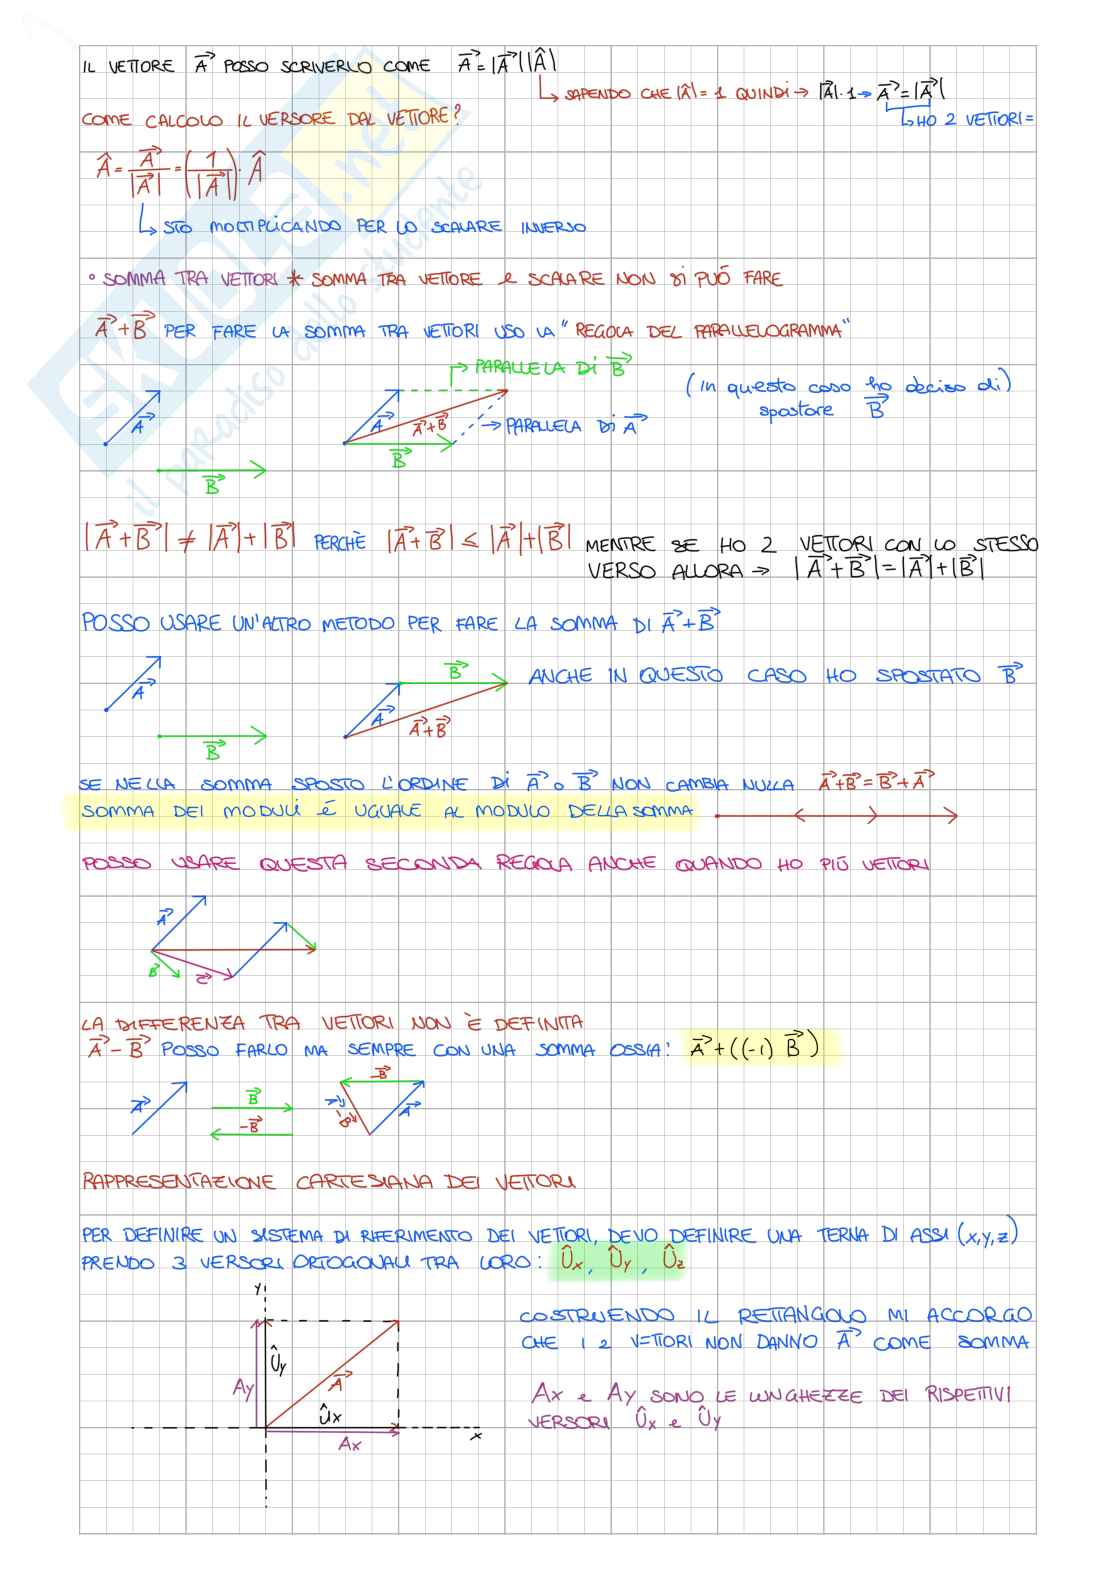 IL VETTORE A⃗ POSSO SCRIVERLO COME A⃗ = |A⃗||Â|
↳ SAPENDO CHE |Â| = 1 QUINDI → |A⃗|·1 → A⃗ = |A⃗|
↳ HO 2 VETTORI =
COME CALCOLO IL VERSORE DAL VETTORE?
Â = A⃗/|A⃗| = (1/|A⃗|)·Â
↳ STO MOLTIPLICANDO PER LO SCALARE INVERSO
° SOMMA TRA VETTORI * SOMMA TRA VETTORE e SCALARE NON SI PUÓ FARE
A⃗+B⃗ PER FARE LA SOMMA TRA VETTORI USO LA "REGOLA DEL PARALLELOGRAMMA"
→ PARALLELA DI B⃗
(In questo caso ho deciso di)
spostare B⃗
A⃗
A⃗
A⃗+B⃗
→ PARALLELA DI A⃗
B⃗
B⃗
|A⃗+B⃗| ≠ |A⃗|+|B⃗| PERCHÈ |A⃗+B⃗| ≤ |A⃗|+|B⃗| MENTRE SE HO 2 VETTORI CON LO STESSO
VERSO ALLORA → |A⃗+B⃗| = |A⃗|+|B⃗|
POSSO USARE UN'ALTRO METODO PER FARE LA SOMMA DI A⃗+B⃗
B⃗
ANCHE IN QUESTO CASO HO SPOSTATO B⃗
A⃗
A⃗
A⃗+B⃗
B⃗
SE NELLA SOMMA SPOSTO L'ORDINE DI A⃗ o B⃗ NON CAMBIA NULLA A⃗+B⃗ = B⃗+A⃗
SOMMA DEI MODULI É UGUALE AL MODULO DELLA SOMMA
POSSO USARE QUESTA SECONDA REGOLA ANCHE QUANDO HO PIÚ VETTORI
A⃗
B⃗
C⃗
LA DIFFERENZA TRA VETTORI NON È DEFINITA
A⃗ - B⃗ POSSO FARLO MA SEMPRE CON UNA SOMMA OSSIA: A⃗+((-1) B⃗)
A⃗
B⃗
-B⃗
-B⃗
A⃗-B⃗
A⃗
RAPPRESENTAZIONE CARTESIANA DEI VETTORI
PER DEFINIRE UN SISTEMA DI RIFERIMENTO DEI VETTORI, DEVO DEFINIRE UNA TERNA DI ASSI (x,y,z)
PRENDO 3 VERSORI ORTOGONALI TRA LORO: Ûx, Ûy, Ûz
y
COSTRUENDO IL RETTANGOLO MI ACCORGO
CHE I 2 VETTORI NON DANNO A⃗ COME SOMMA
Ûy
Ay
A⃗
Ax e Ay SONO LE LUNGHEZZE DEI RISPETTIVI
VERSORI Ûx e Ûy
Ûx
Ax
x
SKUOLA.net
il paradiso dello studente